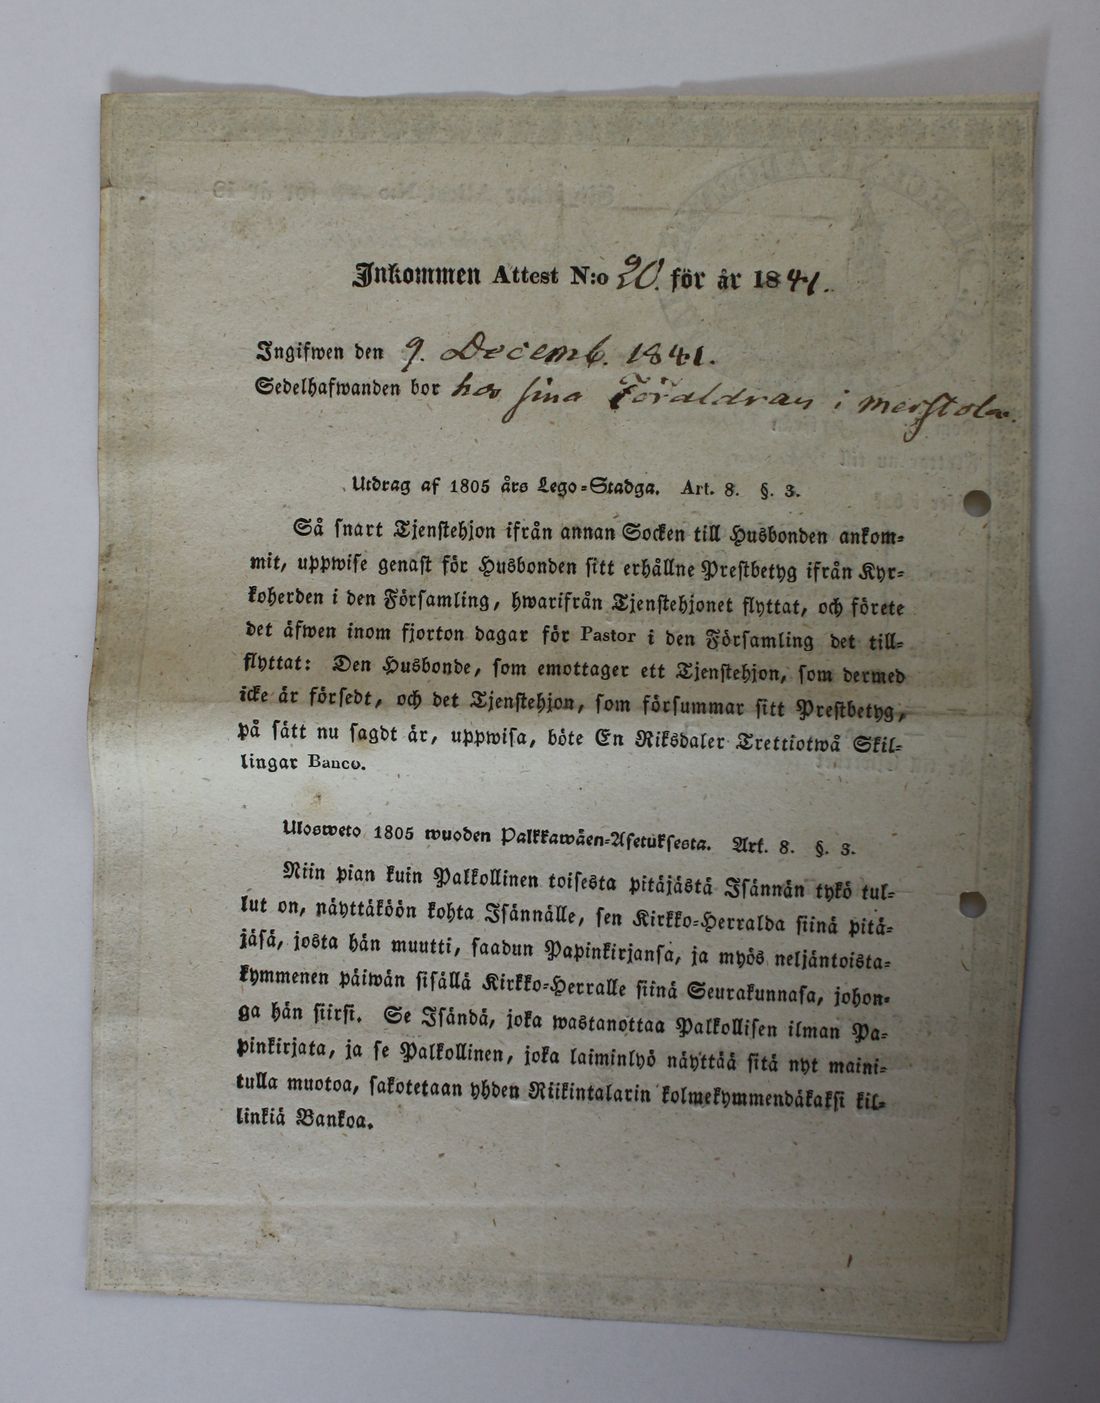 Inkommen Attest N:o 20. för år 1841.
Ingifwen den 9. Decemb. 1841.
Sedelhafwanden bor hos sina Föräldrar i merstola.
Utdrag af 1805 års Lego-Stadga. Art. 8. §. 3.
Så snart Tjenstehjon ifrån annan Socken till Husbonden ankom-
mit, uppwise genast för Husbonden sitt erhållne Prestbetyg ifrån Kyr-
koherden i den Församling, hwarifrån Tjenstehjonet flyttat, och förete
det äfwen inom fjorton dagar för Pastor i den Församling det till-
flyttat: Den Husbonde, som emottager ett Tjenstehjon, som dermed
icke är försedt, och det Tjenstehjon, som försummar sitt Prestbetyg,
på sätt nu sagdt är, uppwisa, böte En Riksdaler Trettiotwå Skil-
lingar Banco.
Ulosweto 1805 wuoden Palkkawäen-Asetuksesta. Art. 8. §. 3.
Niin pian kuin Palkollinen toisesta pitäjästä Isännän tykö tul-
lut on, näyttäköön kohta Isännälle, sen Kirkko-Herralda siinä pitä-
jäsä, josta hän muutti, saadun Papinkirjansa, ja myös neljäntoista-
kymmenen päiwän sisällä Kirkko-Herralle siinä Seurakunnasa, johon-
ga hän siirsi. Se Isändä, joka wastanottaa Palkollisen ilman Pa-
pinkirjata, ja se Palkollinen, joka laiminlyö näyttää sitä nyt maini-
tulla muotoa, sakotetaan yhden Riikintalarin kolmekymmendäkaksi kil-
linkiä Bankoa.